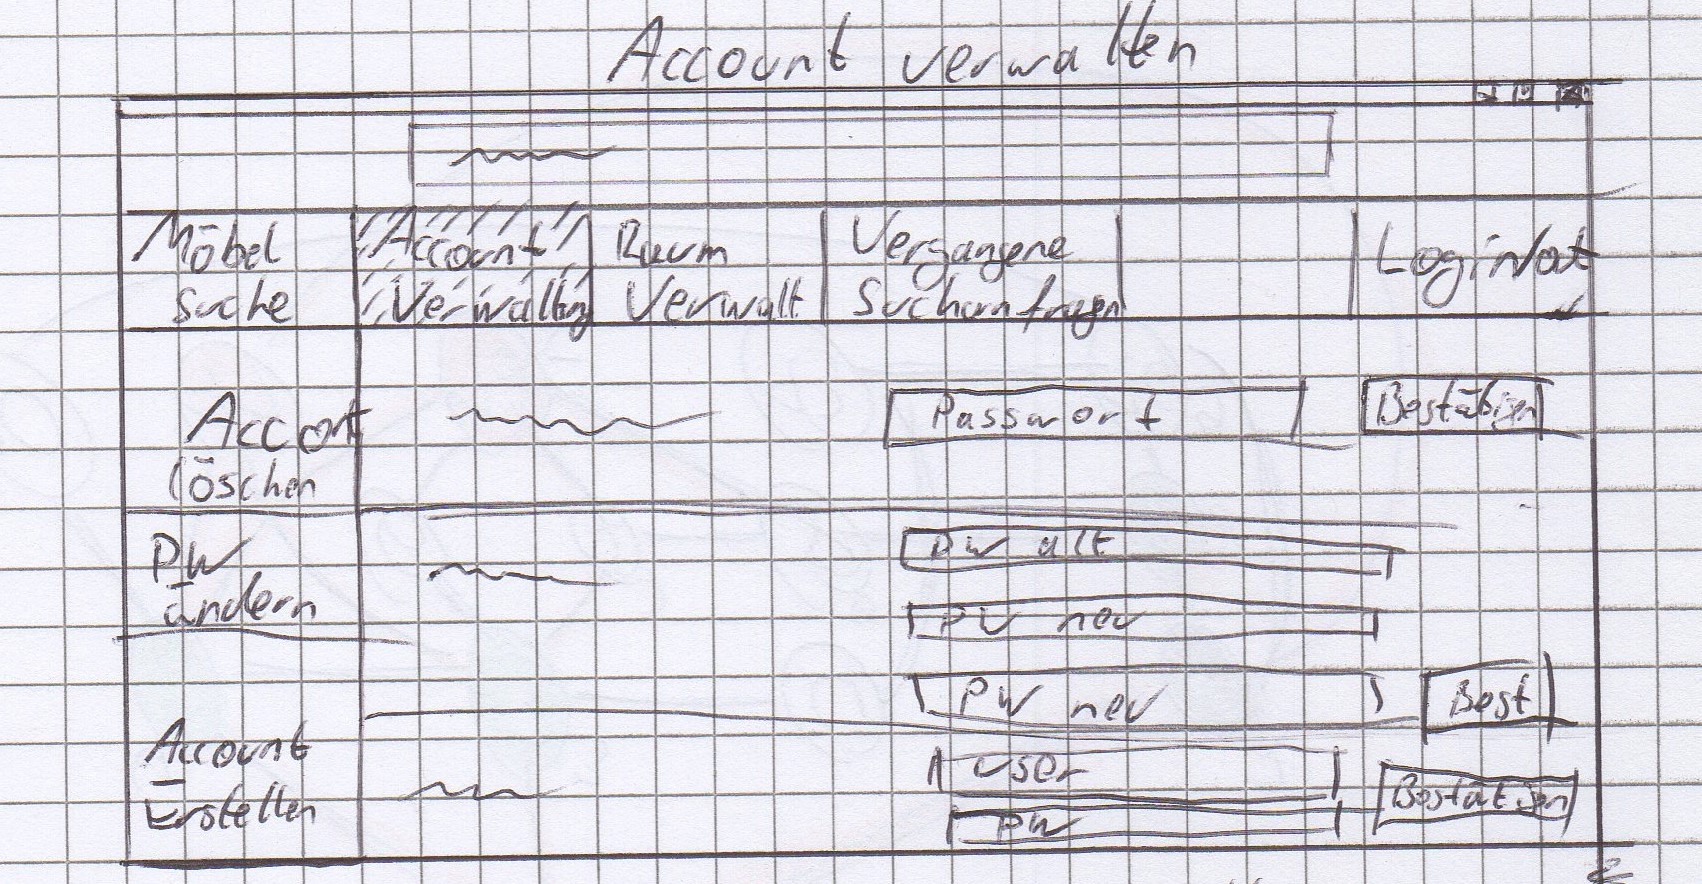 Account verwalten
Möbel suche
Account Verwaltung
Raum Verwalt
Vergangene Suchanfragen
Login/out
Accont löschen
Passwort
Bestätigen
PW ändern
PW alt
PW neu
PW neu
Best
Account Erstellen
user
PW
Bestätigen